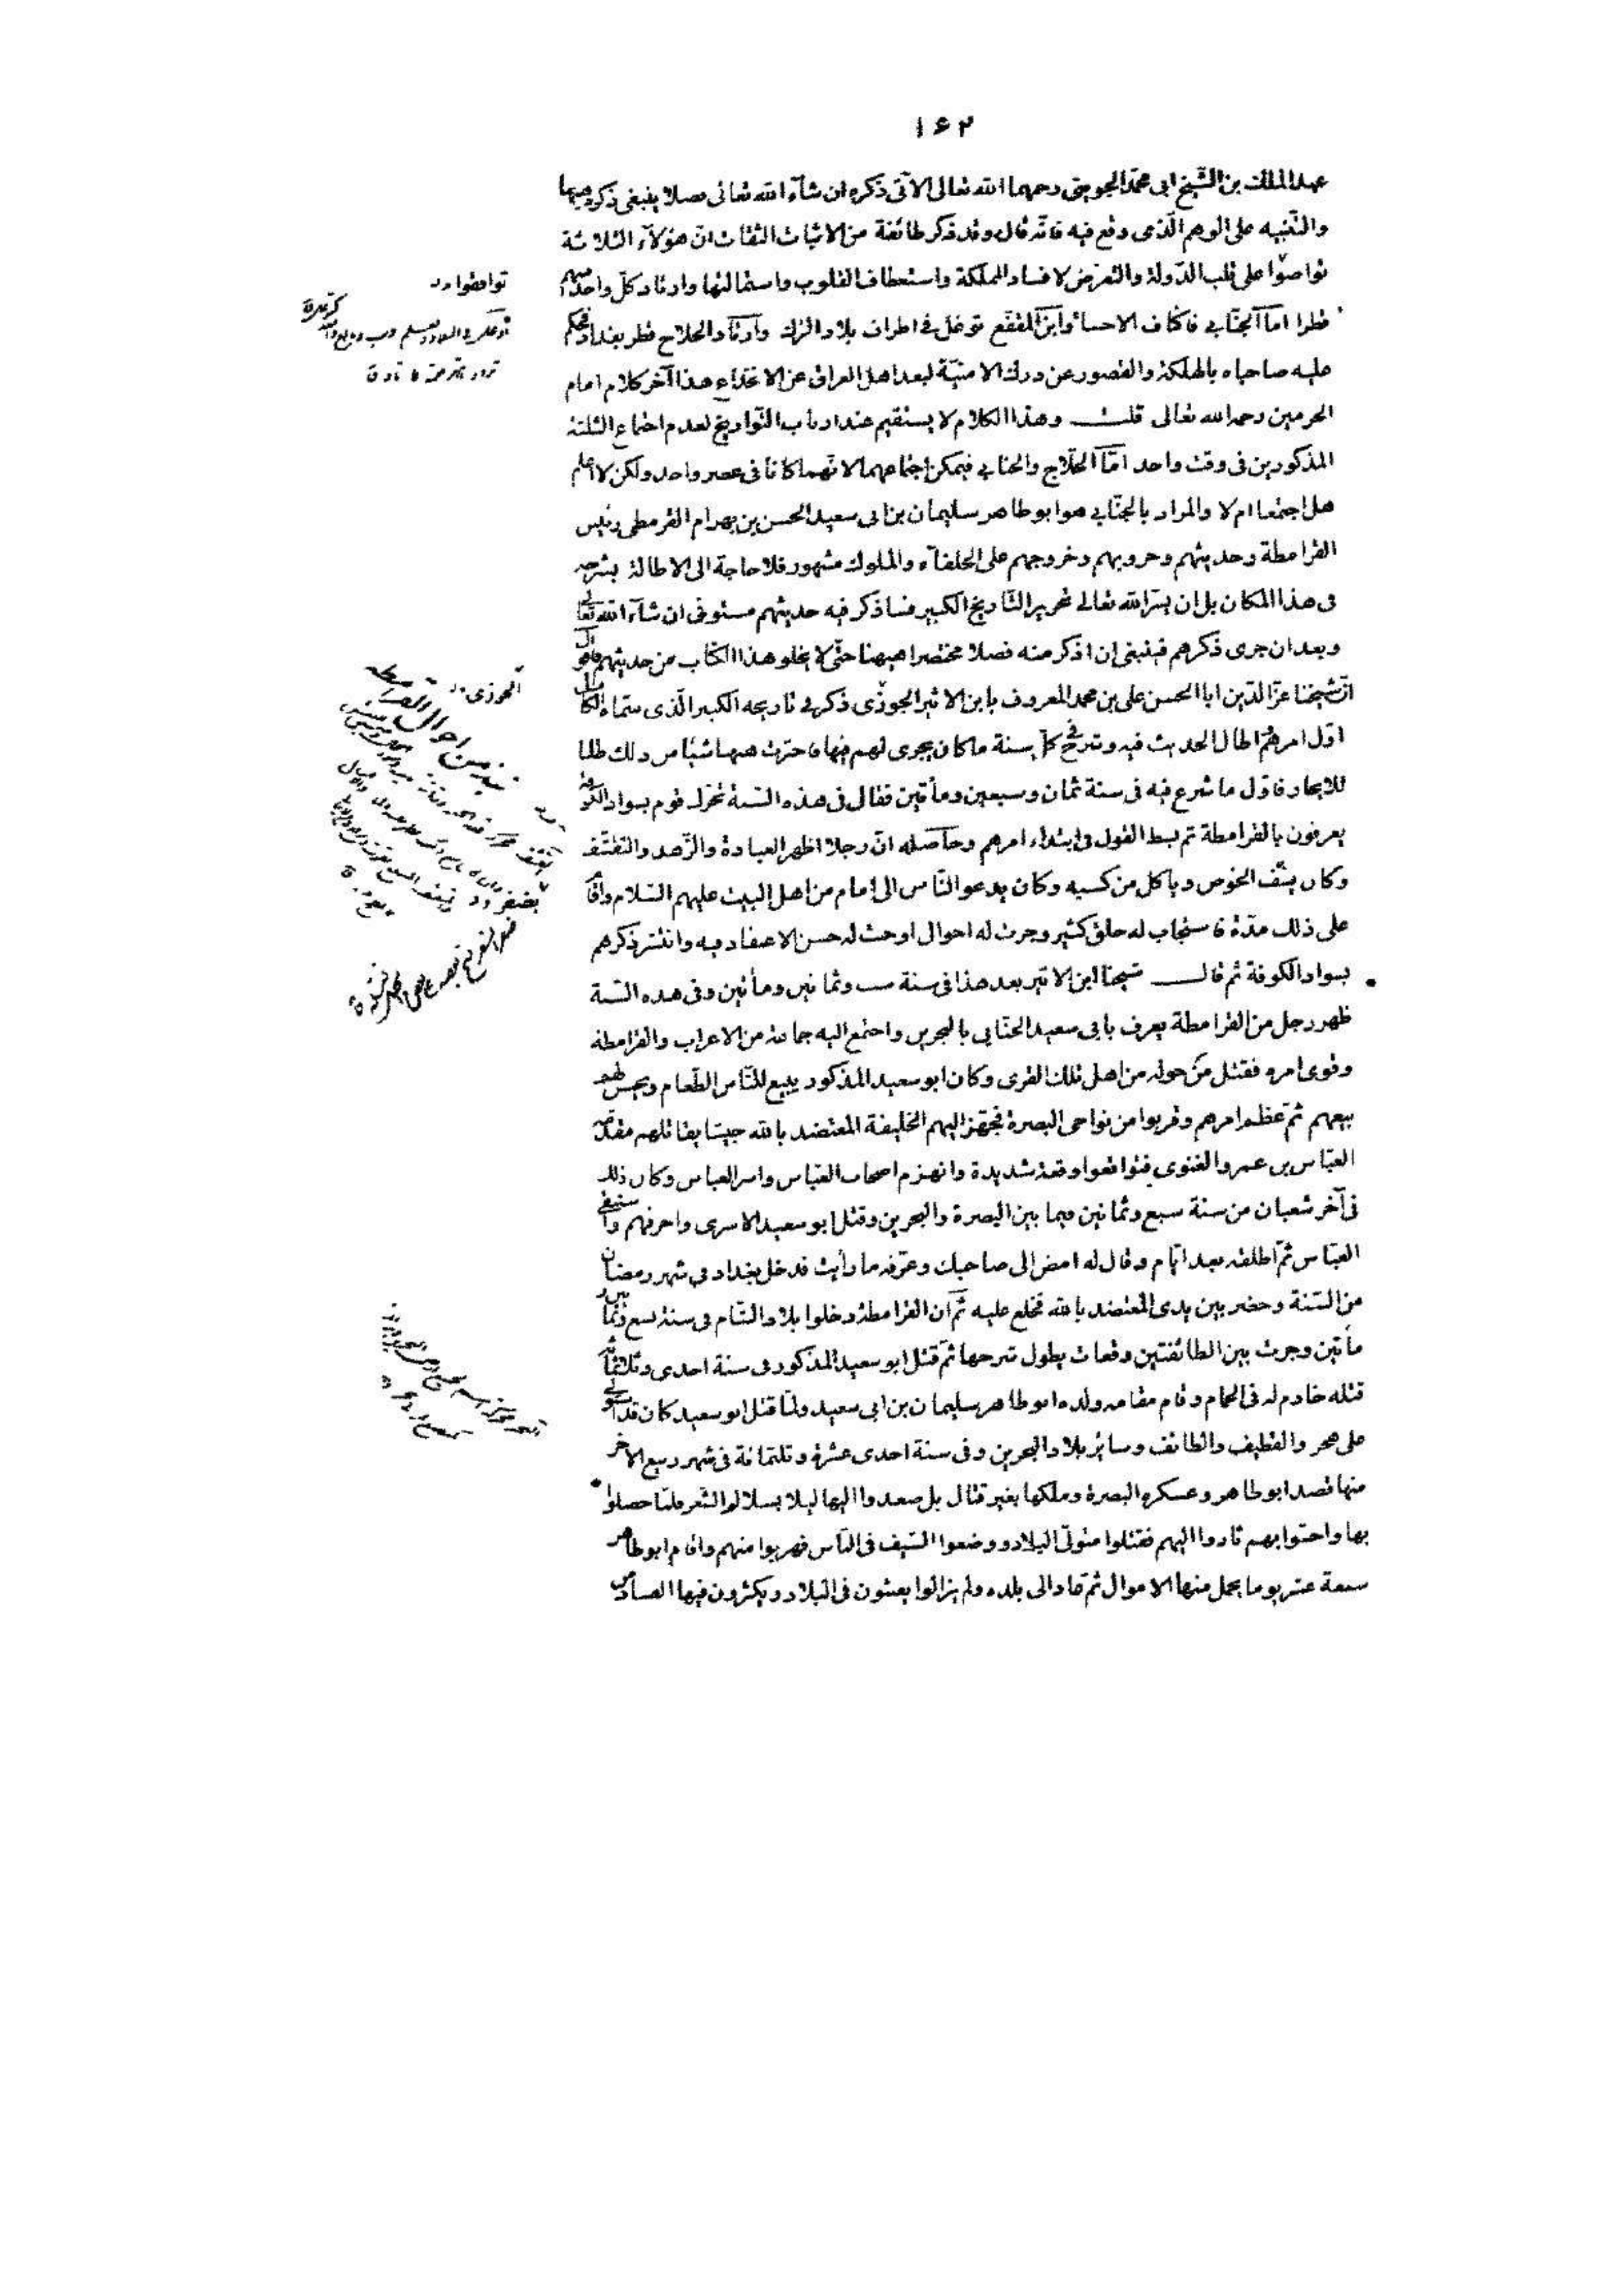 ١٦٢
عبد الملك بن الشيخ ابى محمد الجوينى رحمهما الله تعالى الآتى ذكره ان شآء الله تعالى فصلا ينبغى ذكره هيهنا
والتنبيه على الوهم الذى وقع فيه فانه قال وقد ذكر طائفة من الاثبات الثقات ان هؤلآء الثلاثة
تواصوا على قلب الدولة والتعرض لافساد المملكة واستعطاف القلوب واستمالتها وارتاد كل واحد منهم
قطرا اما الجنابى فاكناف الاحسا وابن المقفع توغل فى اطراف بلاد الترك وارتاد الحلاج قطر بغداد فحكم
عليه صاحباه بالهلكة والقصور عن درك الامنية لبعد اهل العراق عن الانخداع هذا آخر كلام امام
الحرمين رحمه الله تعالى قلت وهذا الكلام لا يستقيم عند ارباب التواريخ لعدم اجتماع الثلثة
المذكورين فى وقت واحد اما الحلاج والجنابى فيمكن اجتماعهما لانهما كانا فى عصر واحد ولكن لا اعلم
هل اجتمعا ام لا والمراد بالجنابى هو ابو طاهر سليمان بن ابى سعيد الحسن بن بهرام القرمطى رئيس
القرامطة وحديثهم وحروبهم وخروجهم على الخلفآء والملوك مشهور فلا حاجة الى الاطالة بشرحه
فى هذا المكان بل ان يسر الله تعالى تحرير التاريخ الكبير فساذكر فيه حديثهم مستوفى ان شآء الله تعالى
وبعد ان جرى ذكرهم فينبغى ان اذكر منه فصلا مختصرا هيهنا حتى لا يخلو هذا الكتاب من حديثهم فاقول
ان شيخنا عز الدين ابا الحسن على بن محمد المعروف بابن الاثير الجوزى ذكر فى تاريخه الكبير الذى سماه الكامل
اول امرهم اطال الحديث فيه وشرح فى كل سنة ما كان يجرى لهم فيها فاخترت هيهنا شيئا من ذلك طلبا
للايجاز فاول ما شرع فيه فى سنة ثمان وسبعين ومأتين فقال فى هذه السنة تحرك قوم بسواد الكوفة
يعرفون بالقرامطة ثم بسط القول فى ابتداء امرهم وحاصله ان رجلا اظهر العبادة والزهد والتقشف
وكان يشف الخوص وياكل من كسبه وكان يدعو الناس الى امام من اهل البيت عليهم السلام واقام
على ذلك مدة فاستجاب له خلق كثير وجرت له احوال اوجبت له حسن الاعتقاد فيه وانتشر ذكرهم
بسواد الكوفة ثم قال شيخنا ابن الاثير بعد هذا فى سنة ست وثمانين ومأتين وفى هذه السنة
ظهر رجل من القرامطة يعرف بابى سعيد الجنابى بالبحرين واجتمع اليه جماعة من الاعراب والقرامطة
وقوى امره فقتل من حوله من اهل تلك القرى وكان ابو سعيد المذكور يبيع للناس الطعام ويحسب لهم
بيعهم ثم عظم امرهم وقربوا من نواحى البصرة فجهز اليهم الخليفة المعتضد بالله جيشا يقاتلهم مقدمه
العباس بن عمرو الغنوى فتواقعوا وقعة شديدة وانهزم اصحاب العباس واسر العباس وكان ذلك
فى آخر شعبان من سنة سبع وثمانين فيما بين البصرة والبحرين وقتل ابو سعيد الاسرى واحرقهم واستبقى
العباس ثم اطلقه بعد ايام وقال له امض الى صاحبك وعرفه ما رأيت فدخل بغداد فى شهر رمضان
من السنة وحضر بين يدى المعتضد بالله فخلع عليه ثم ان القرامطة دخلوا بلاد الشام فى سنة تسع وثمانين
مأتين وجرت بين الطائفتين وقعات يطول شرحها ثم قتل ابو سعيد المذكور فى سنة احدى وثلاثمائة
قتله خادم له فى الحمام وقام مقامه ولده ابو طاهر سليمان بن ابى سعيد ولما قتل ابو سعيد كان قد استولى
على هجر والقطيف والطائف وسائر بلاد البحرين وفى سنة احدى عشرة وثلثمائة فى شهر ربيع الآخر
منها قصد ابو طاهر وعسكره البصرة وملكها بغير قتال بل صعدوا اليها ليلا بسلالم الشعر فلما حصلوا
بها واحسوا بهم ثاروا اليهم فقتلوا متولى البلاد ووضعوا السيف فى الناس فهربوا منهم واقام ابو طاهر
سبعة عشر يوما يحمل منها الاموال ثم عاد الى بلده ولم يزالوا يعيثون فى البلاد ويكثرون فيها الفساد من